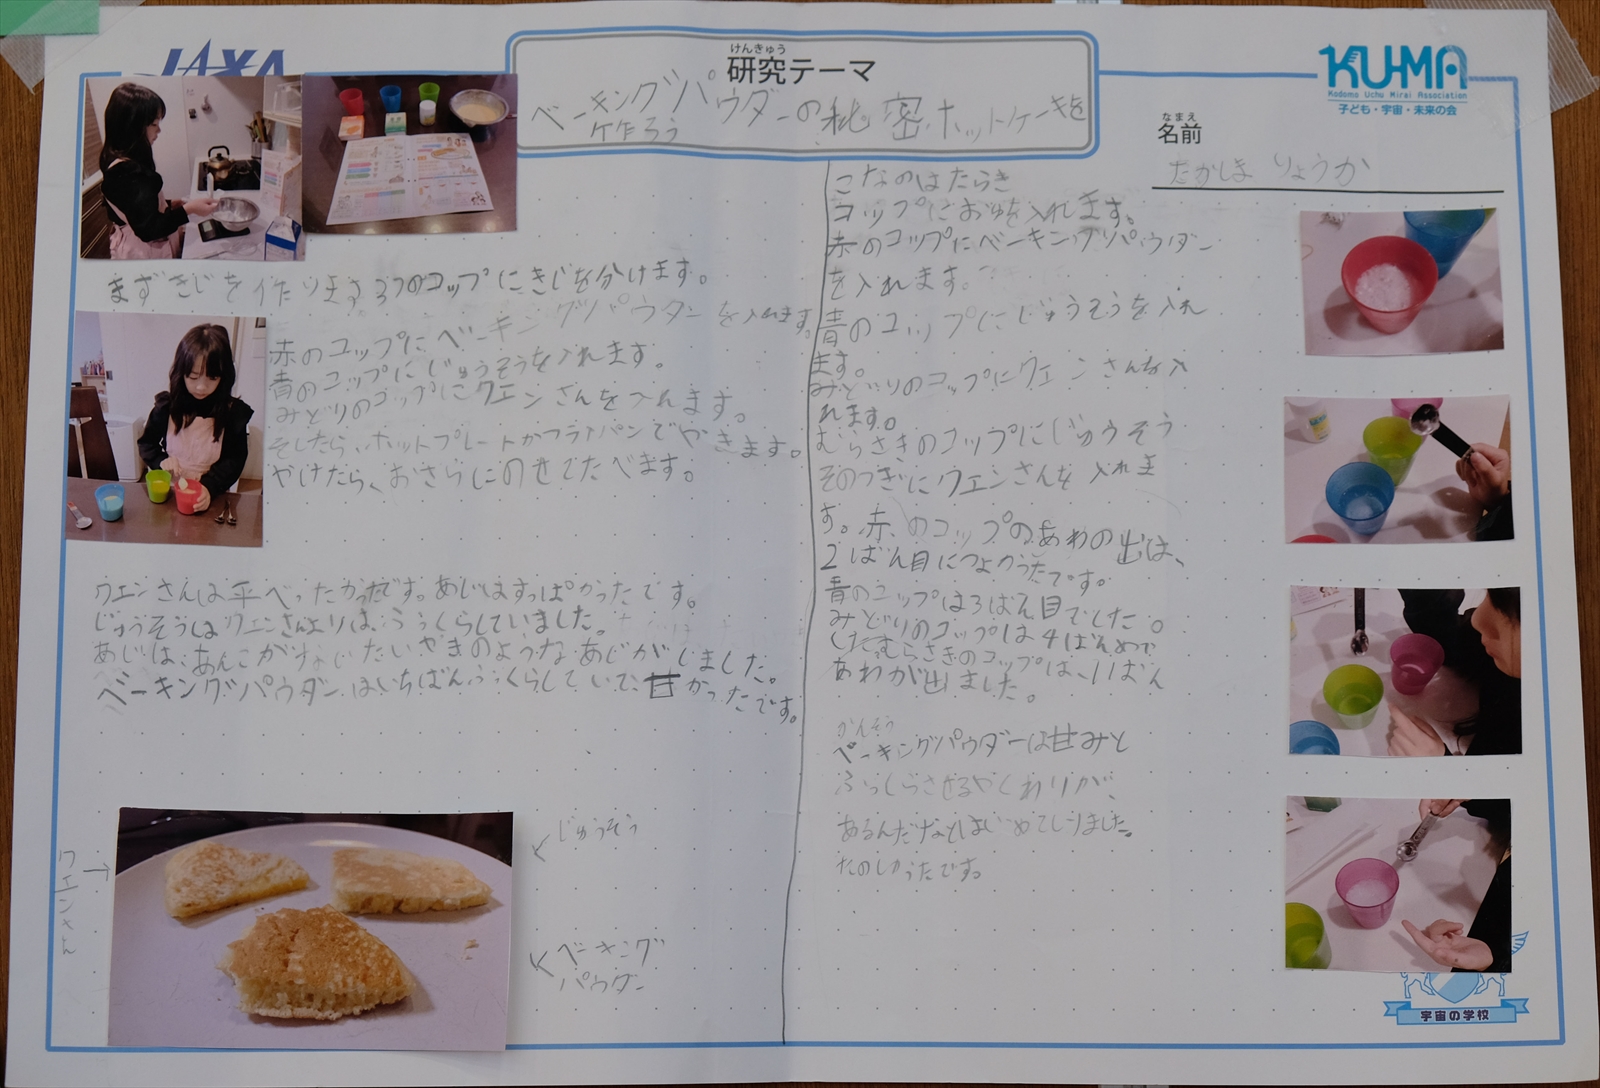 JAXA
けんきゅう
研究テーマ
ベーキングパウダーの秘密ホットケーキを
作ろう
KU-MA
Kodomo Uchu Mirai Association
子ども・宇宙・未来の会
なまえ
名前
たかしま りょうか
まずきじを作ります3つのコップにきじを分けます。
赤のコップにベーキングパウダーを入れます。
青のコップにじゅうそうを入れます。
みどりのコップにクエンさんを入れます。
そしたら、ホットプレートかフライパンでやきます。
やけたら、おさらにのせてたべます。
クエンさんは平べったかったです。あじはすっぱかったです。
じゅうそうはクエンさんよりは、ふっくらしていました。
あじは、あんこがなしたいやきのようなあじがしました。
ベーキングパウダーはいちばんふっくらしていて、甘かったです。
クエンさん
じゅうそう
ベーキング
パウダー
こなのはたらき
コップにおゆを入れます。
赤のコップにベーキングパウダー
を入れます。
青のコップにじゅうそうを入れ
ます。
みどりのコップにクエンさんを入
れます。
むらさきのコップにじゅうそう
そのつぎにクエンさんを入れま
す。赤のコップのあわの出は、
2ばん目につよかったです。
青のコップは3ばん目でした。
みどりのコップは4ばんめで
したむらさきのコップは、1ばん
あわが出ました。
かんそう
ベーキングパウダーは甘みと
ふっくらさせるやくわりが、
あるんだなとはじめてしりました。
たのしかったです。
宇宙の学校